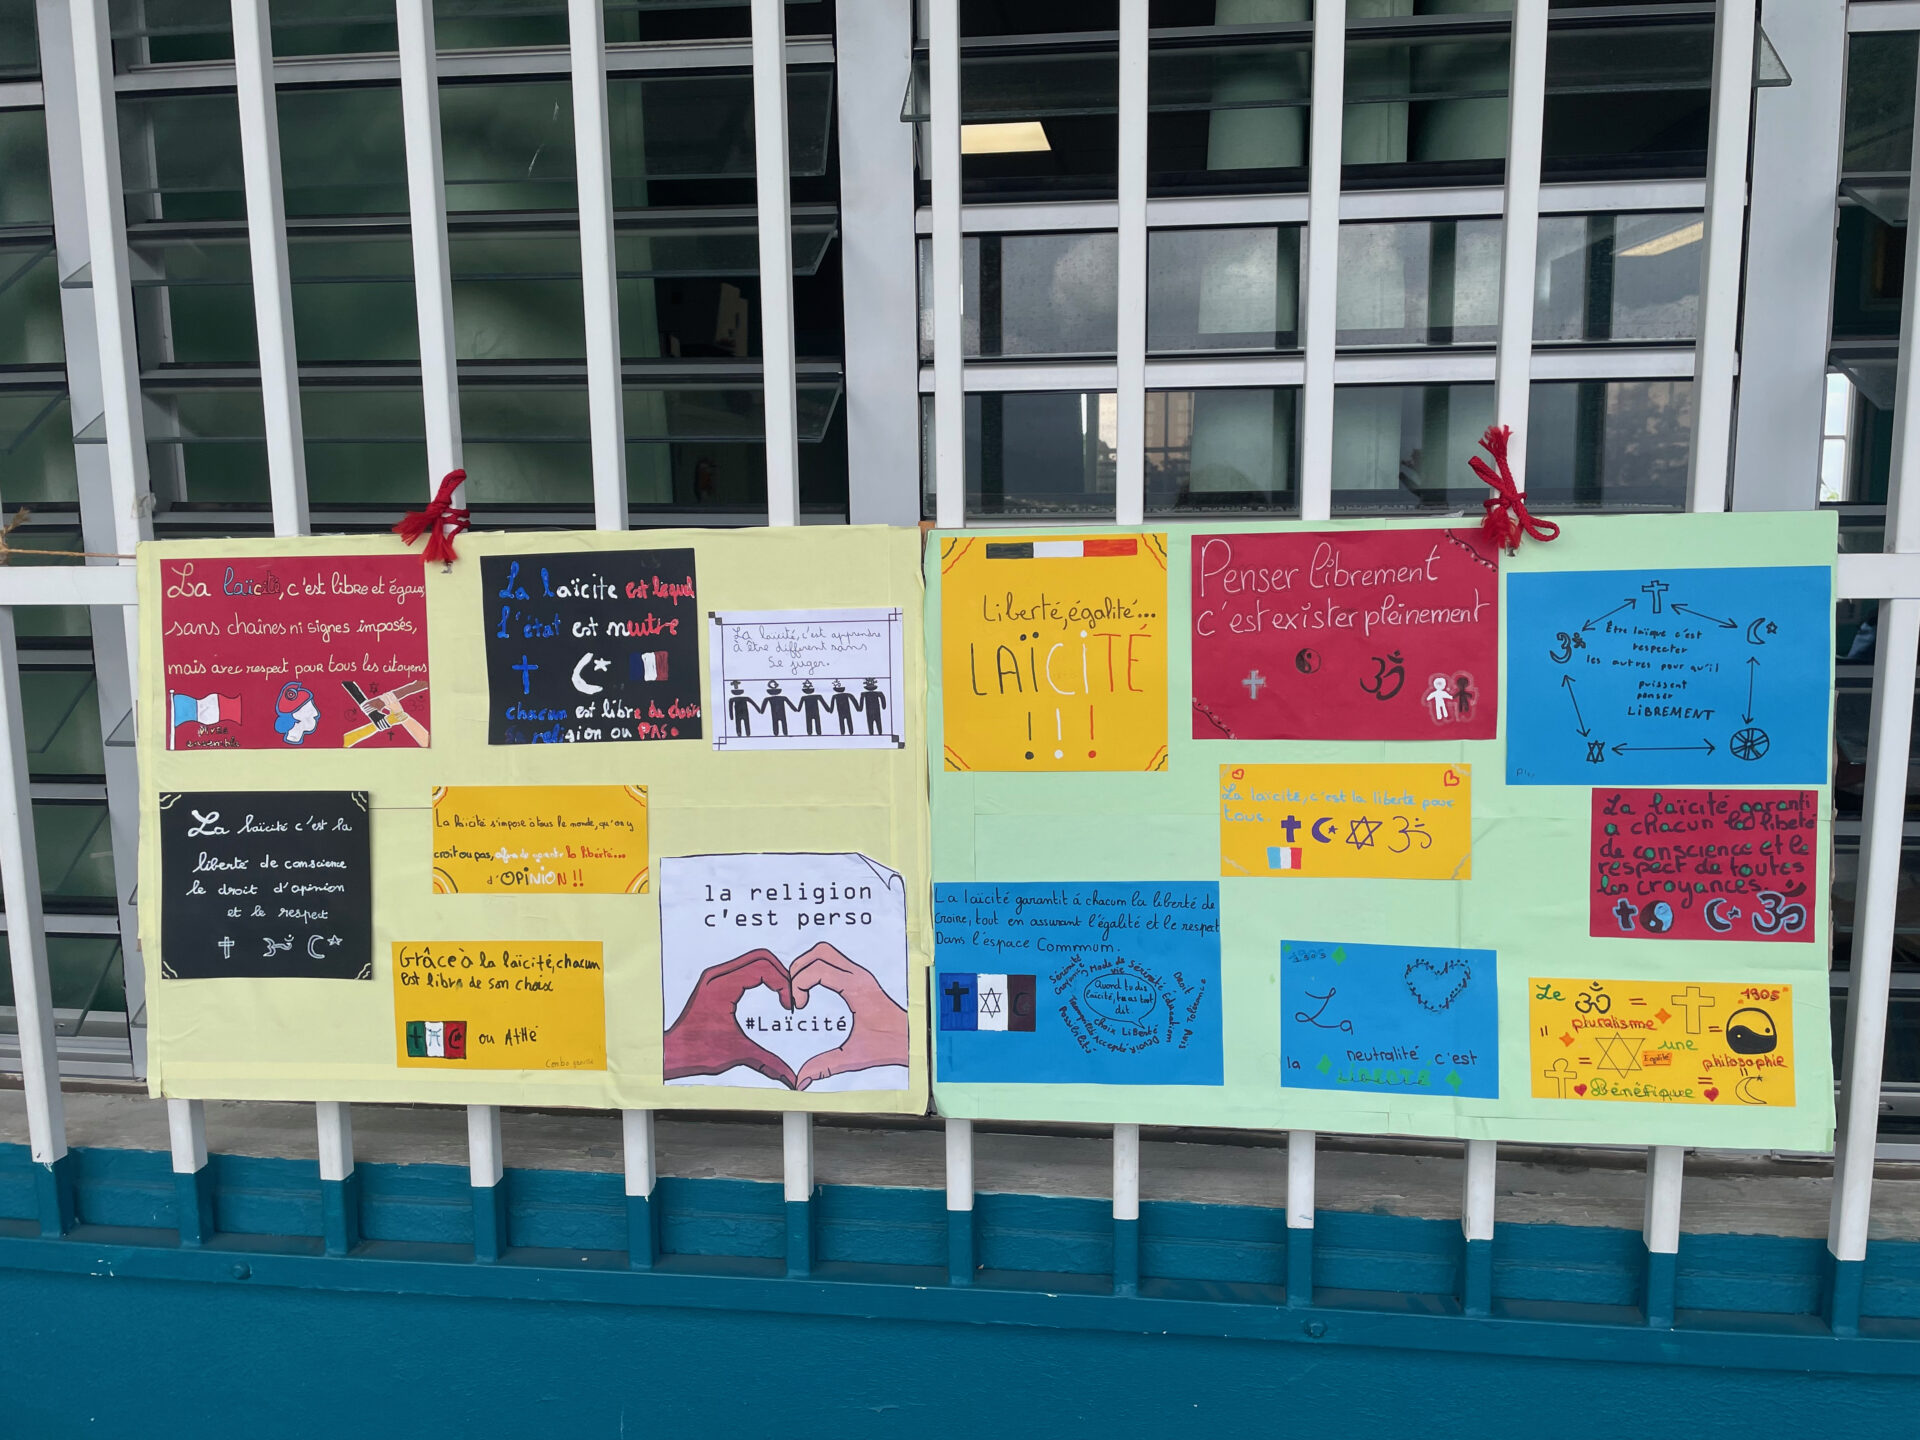 La laïcité, c'est libre et égaux
sans chaînes ni signes imposés,
mais avec respect pour tous les citoyens
La laïcite est lequel
l'état est neutre
chacun est libre de choisir
sa religion ou PAS.
La laïcité, c'est apprendre
à être différent sans
se juger.
La laïcité c'est la
liberté de conscience
le droit d'opinion
et le respect
La laïcité s'impose à tous le monde, qu'on y
croit ou pas, afin de garantir la libérté...
d'OPINION !!
Grâce à la laïcité, chacun
est libre de son choix
ou AtHé
la religion
c'est perso
#Laïcité
Liberté, égalité...
LAÏCITÉ
! ! !
Penser librement
c'est exister pleinement
Être laïque c'est
respecter
les autres pour qu'il
puissent
penser
LIBREMENT
La laïcité, c'est la liberté pour
tous
La laïcité garanti
a chacun la libeté
de conscience et le
respect de toutes
les croyances.
La laïcité garantit à chacun la liberté de
Croire, tout en assurant l'égalité et le respect
Dans l'espace Commum.
Mode de
vie
Sérénité
Education
Droit
Tolérance
Avis
Devoir
Accepté
Tranquilité
Possibilité
Choix Liberté
Quand tu dis
laïcité, tu as tout
dit.
1905
La
la neutralité c'est
LIBERTÉ
Le = 1905
" pluralisme =
= une
Egalité philosophie
= "
Bénéfique